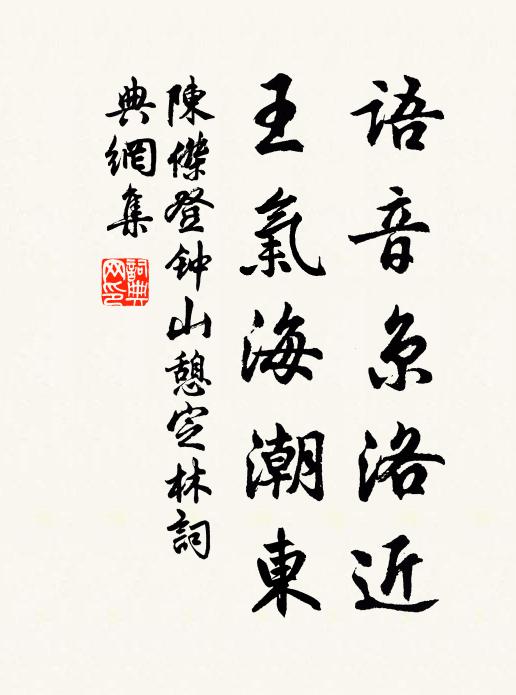 語音京洛近
王氣海潮東
陳傑登鍾山憩定林詞
典網集
詞典网印